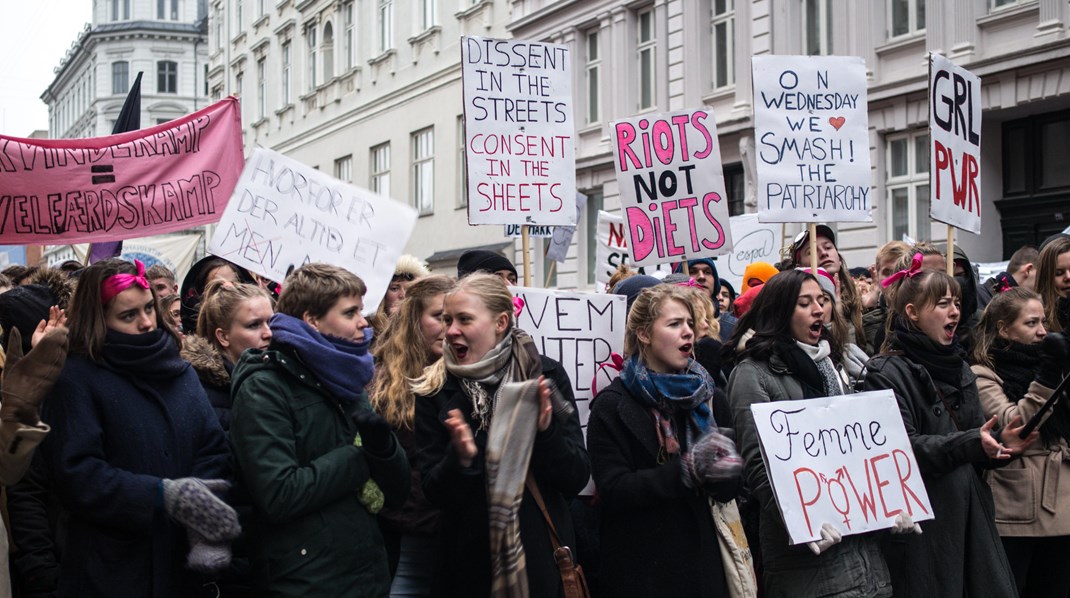 KVINDEKAMP
=
VELFÆRDSKAMP
HVORFOR ER
DER ALTID ET
DISSENT
IN THE
STREETS
CONSENT
IN THE
SHEETS
RIOTS
NOT
DIETS
ON
WEDNESDAY
WE ♥
SMASH!
THE
PATRIARCHY
GRL
PWR
HVEM
Femme
POWER